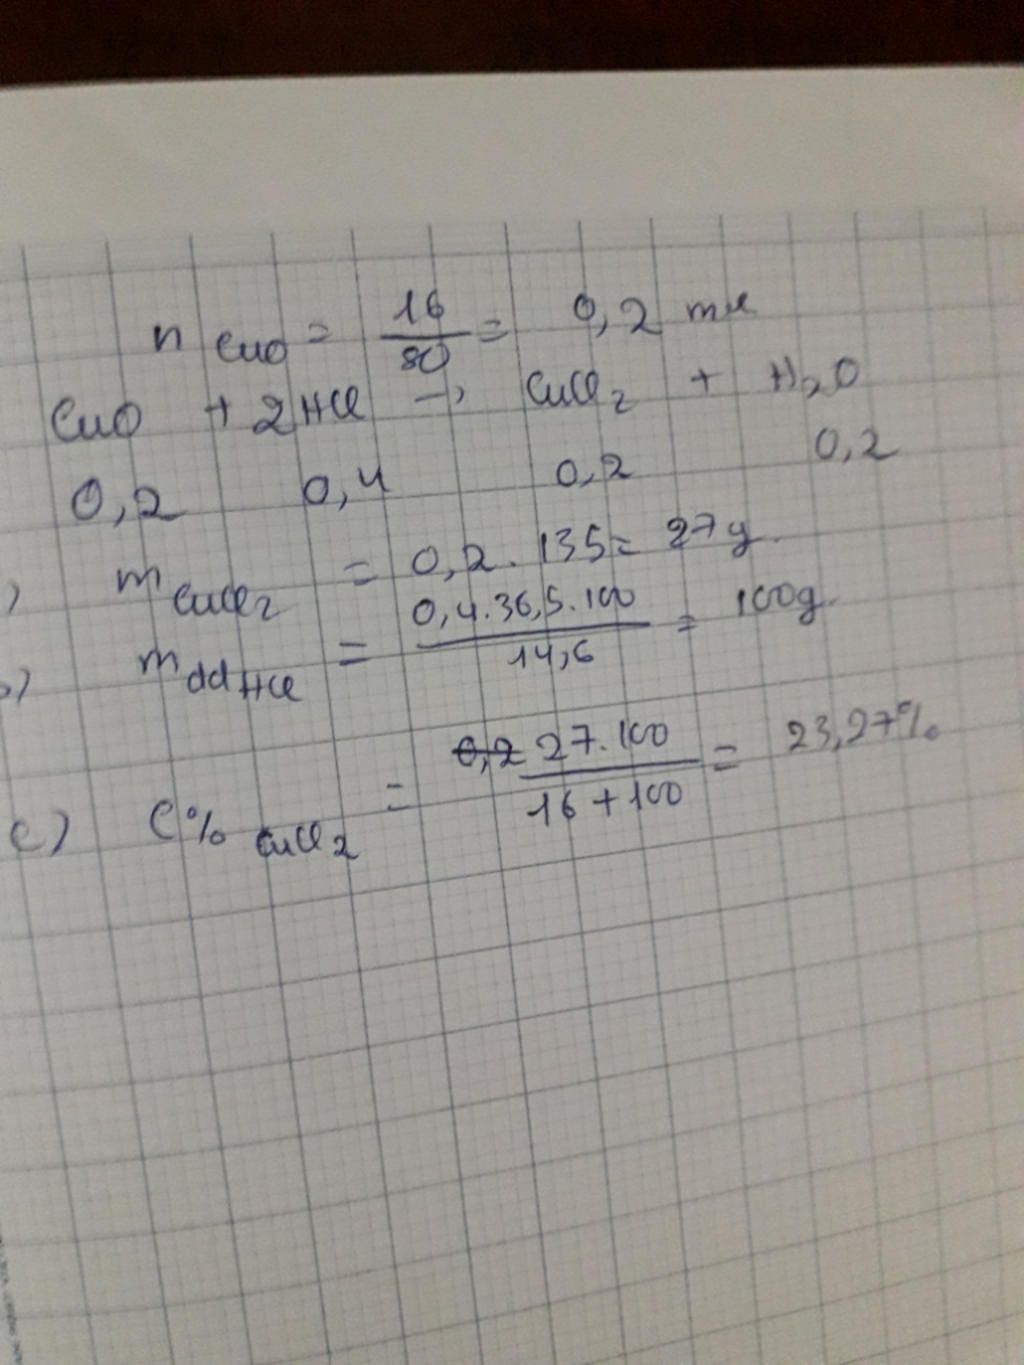 n CuO = 16/80 = 0,2 mol
CuO + 2HCl → CuCl2 + H2O
0,2 0,4 0,2 0,2
) m CuCl2 = 0,2 . 135 = 27g.
b) m dd HCl = 0,4.36,5.100/14,6 = 100g.
c) C% CuCl2 = 0,2 27.100/16+100 = 23,27%.